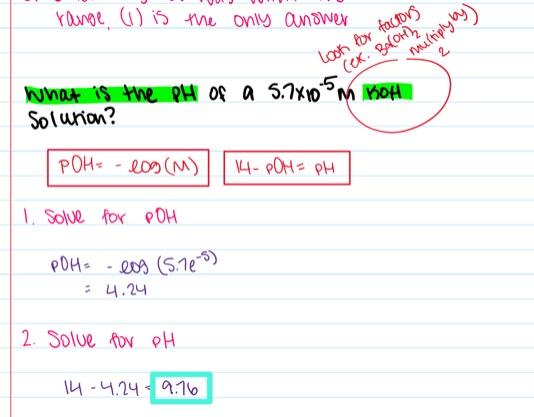 range, (1) is the only answer
Look for factors
(ex. Ba(OH)2
multiply by)
2
What is the pH of a 5.7x10^-5 M KOH
Solution?
pOH = - log(M)
14 - pOH = pH
1. Solve for pOH
pOH = - log (5.7e^-5)
= 4.24
2. Solve for pH
14 - 4.24 = 9.76